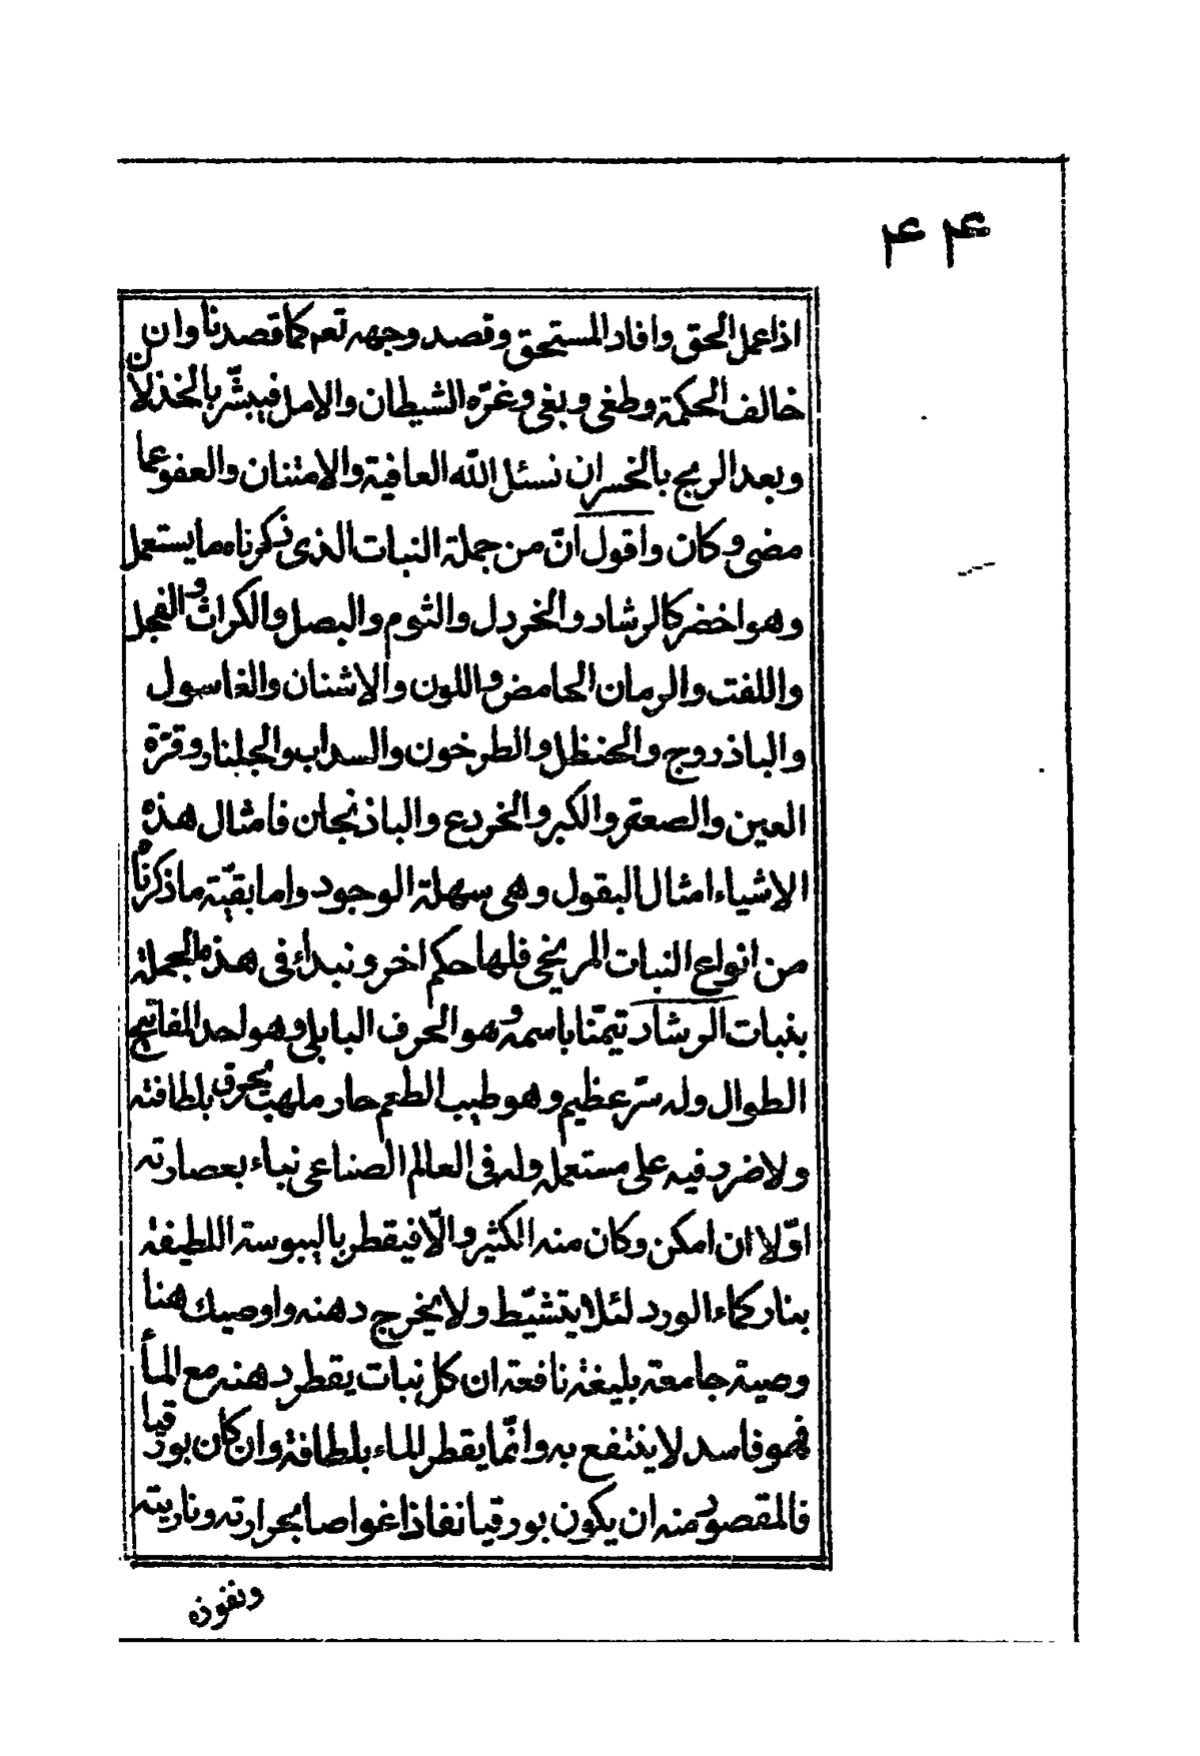 ۴۴
اذا عمل الحق وافاد المستحق وقصد وجهه تعم كما قصدنا وان
خالف الحكمة وطغى وبغى وغرّه الشيطان والامل فيبشّر بالخذلان
وبعد الربح بالخسران نسئل الله العافية والامتنان والعفو عما
مضى وكان واقول انّ من جملة النبات الذى ذكرناه ما يستعمل
وهو اخضر كالرشاد والخردل والثوم والبصل والكراث والفجل
واللفت والرمان الحامض واللون والاشنان والغاسول
والباذروج والحنظل والطرخون والسداب والجلنار وقرّة
العين والصعتر والكبر والخردع والباذنجان فامثال هذه
الاشياء امثال البقول وهى سهلة الوجود واما بقيّة ما ذكرناه
من انواع النبات المريخى فلها حكم اخر ونبداء فى هذه الجملة
بنبات الرشاد تيمّنا باسمه وهو الحرف البابلى وهو احد المفاتيح
الطوال وله سرّ عظيم وهو طيب الطعم حار ملهب يحرق بلطافته
ولا ضرر فيه على مستعمله وله فى العالم الصناعى نباء بعصارته
اوّلا ان امكن وكان منه الكثير والّا فيقطر باليبوسة اللطيفة
بنار كماء الورد لئلا يتشيّط ولا يخرج دهنه واوصيك هنا
وصية جامعة بليغة نافعة ان كل نبات يقطر دهنه مع الماء
فهو فاسد لا ينتفع به وانّما يقطر الماء بلطافة وان كان بورقيا
فالمقصود منه ان يكون بورقيا نفاذا غواصا بحرارته وناريته
ونفوذه